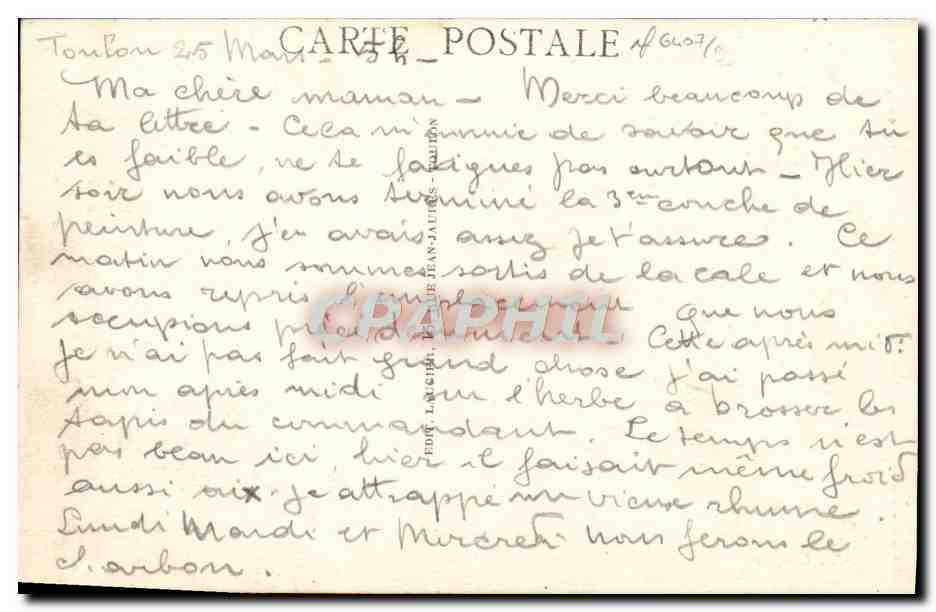 CARTE POSTALE
Toulon 25 Mars - 5h -
Ma chère maman - Merci beaucoup de
ta lettre - Cela m'ennuie de savoir que tu
es faible, ne te fatigues pas surtout - Hier
soir nous avons terminé la 3ème couche de
peinture, j'en avais assez je t'assure. Ce
matin nous sommes sortis de la cale et nous
avons repris l'emplacement que nous
occupions précédemment. Cette après mid.
Je n'ai pas fait grand chose j'ai passé
mon après midi sur l'herbe à brosser les
tapis du commandant. Le temps n'est
pas beau ici, hier il faisait même froid
aussi ai je attrappé un vieux rhume.
Lundi Mardi et Mercredi nous ferons le
charbon.
EDIT. LAUGIER, 15, RUE JEAN-JAURÈS - TOULON
CPAPHIL